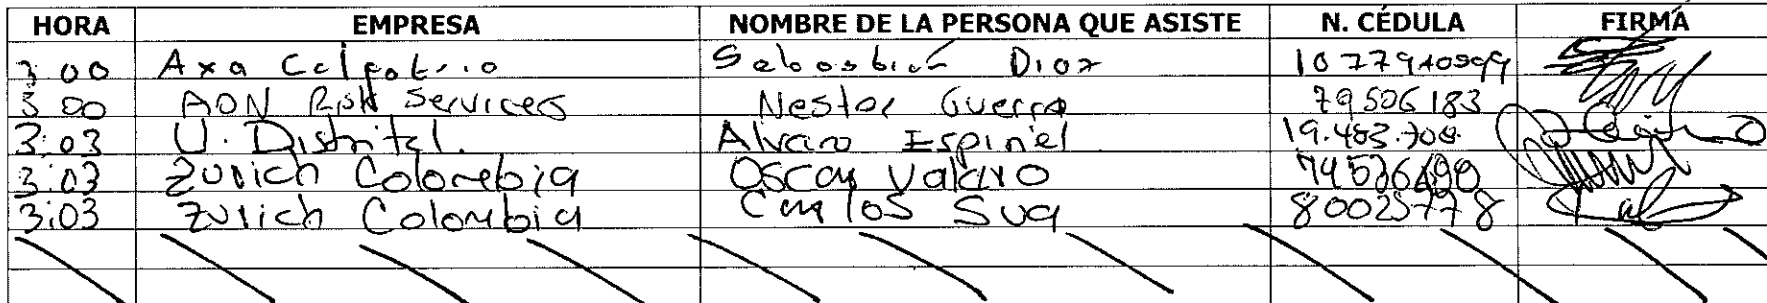 HORA EMPRESA NOMBRE DE LA PERSONA QUE ASISTE N. CÉDULA FIRMA
3:00 Axa Colpatria Sebastián Díaz 1077940599
3:00 AON Risk Services Nestor Guerra 79506183
3:03 U. Distrital. Alvaro Espinel 19.483.708
3:03 Zurich Colombia Oscar 
3:03 Zurich Colombia Carlos Sua